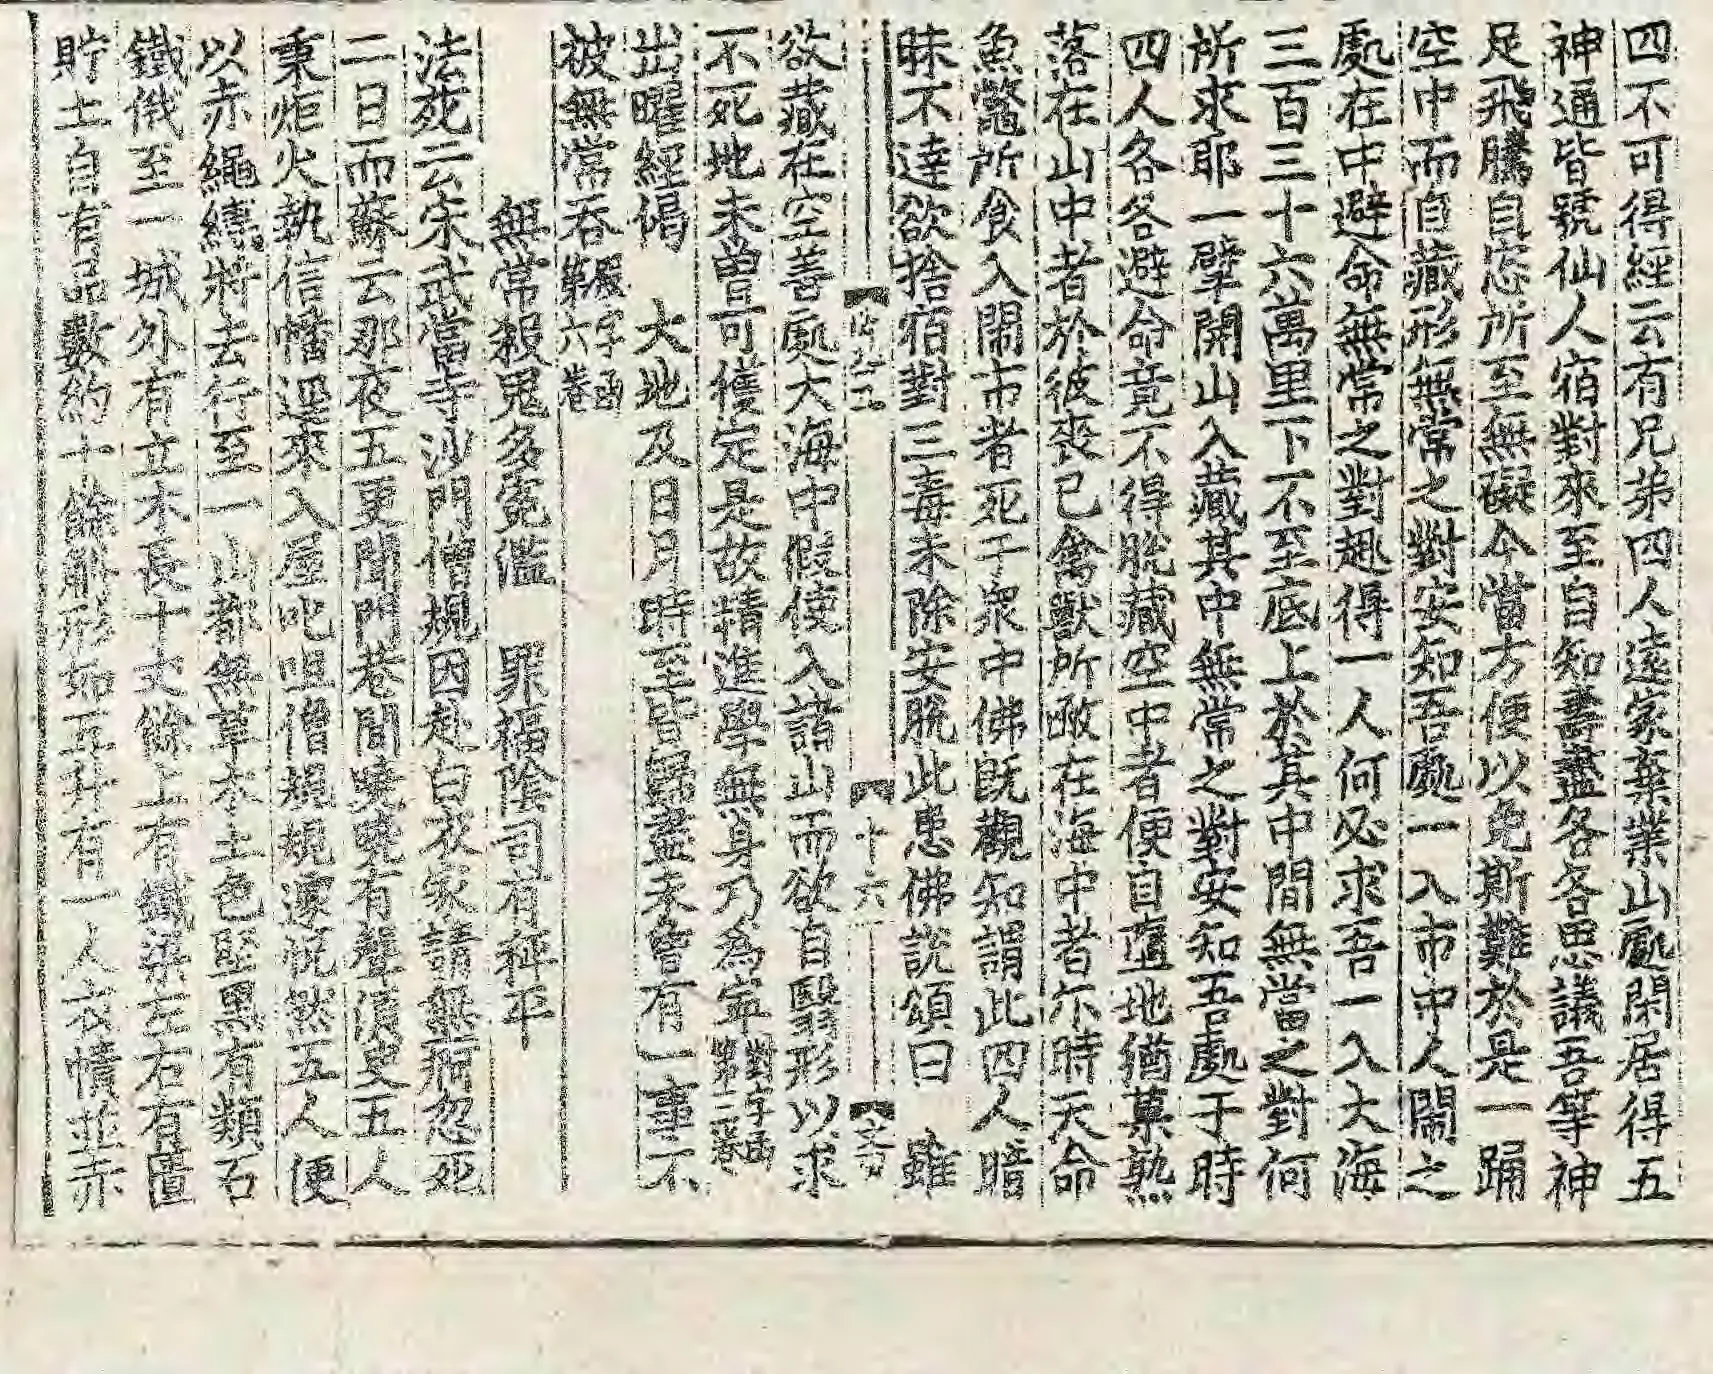 四不可得經云有兄弟四人遠家棄業山處閑居得五
神通皆號仙人宿對來至自知壽盡各各思議吾等神
足飛騰自恣所至無礙今當方便以免斯難於是一踊
空中而自藏形無常之對安知吾處一入市中人閙之
處在中避命無常之對趣得一人何必求吾一入大海
三百三十六萬里下不至底上於其中間無當之對何
所求耶一擘開山入藏其中無常之對安知吾處于時
四人各各避命竟不得脫藏空中者便自墮地猶菓熟
落在山中者於彼喪已禽獸所噉在海中者尒時夭命
魚鼈所食入閙市者死于衆中佛旣觀知謂此四人暗
昧不達欲捨宿對三毒未除安脫此患佛說頌曰　雖
十六
欲藏在空善處大海中假使入諸山而欲自翳形以求
不死地未曾可獲定是故精進學無身乃為寧對字函第三卷
出曜經偈　大地及日月時至皆歸盡未曾有一事不
被無常吞第六卷
無常殺鬼多寃濫　罪福陰司有秤平
法苑云宋武當寺沙門僧規因赴白衣家請無病忽死
二日而蘇云那夜五更聞門巷間曉曉有聲須臾五人
秉炬火執信幡逕來入屋叱咀僧規規遂怳然五人便
以赤繩縛將去行至一山都無草木土色堅黑有類石
鐵俄至一城外有立木長十丈餘上有鐵梁左右有匱
貯土自有品數約十餘斛形如五升有一人衣幘並赤